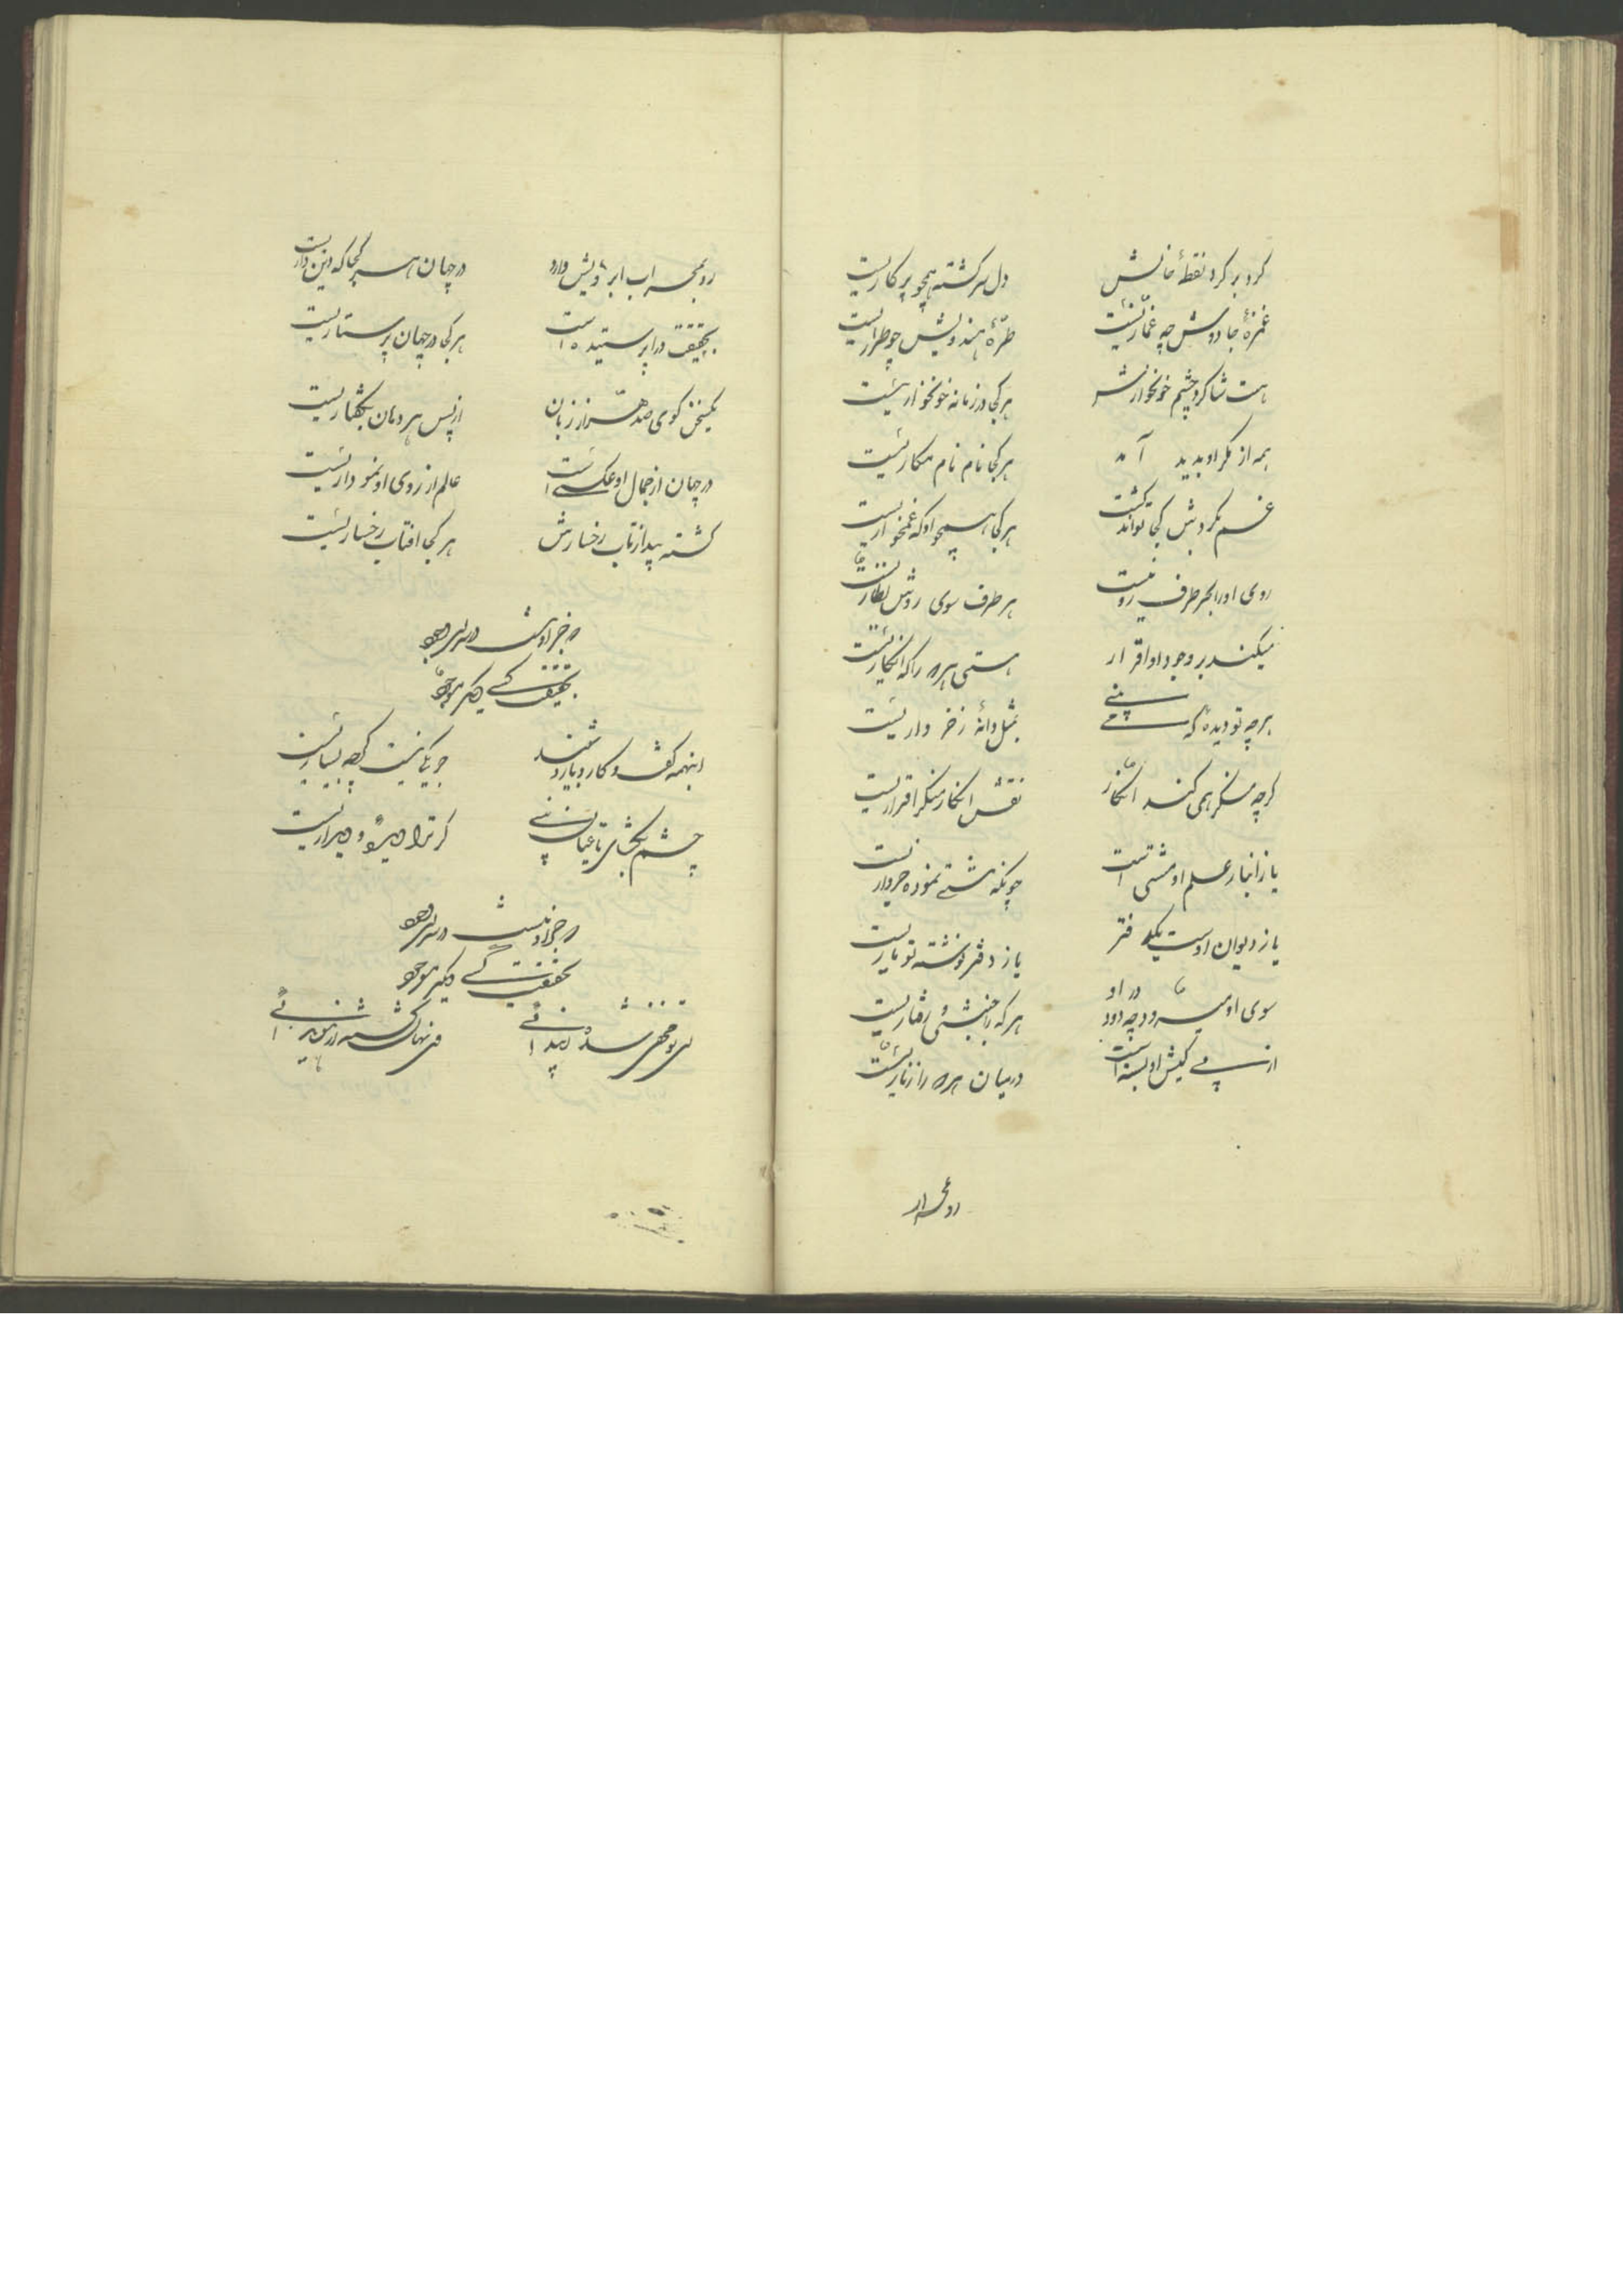 کرد بر کرد نقطهٔ خالش دل سرکشته همچو پرکاریست
غمزهٔ جادویش چه غمّازیست طرّهٔ هندویش چو طراریست
هست شاکرد چشم خونخوارش هر کجا در زمانه خونخواریست
همه از مکر او بدید آمد هر کجا نام نام مکاریست
غم بکردش کجا تواند کشت هر کجا همچو او که غمخواریست
روی او را بهر طرف روئیست هر طرف سوی رویش نظاریست
میکند بر وجود او اقرار هستی هر که را که انکاریست
هر چه تو دیدهٔ که می بینی بمثل دانهٔ ز خرواریست
کرچه منکر همی کند انکار نقش انکار منکر اقراریست
یا ز انبار علم او مشتی است چونکه مشتی نموده خرواریست
یا ز دیوان اوست یکدفتر یا ز دفتر نوشته توماریست
سوی او میرود چه در او هر که را جنبشی و رفتاریست
از پی کیش او بسته است در میان هر که را زناریست
رو بمحراب
رو بمحراب ابرویش دارد در جهان هر کجا که دین داریست
بحقیقت ورا پرستیده است هر کجا در جهان پرستاریست
یکسخن کوی صد هزار زبان از پس هر دهان بکفتاریست
در جهان از جمال او عکسی است عالم از روی او نموداریست
کشته پیدا ز تاب رخسارش هر کجا افتاب رخساریست
که جز او نیست در سرای وجود
بحقیقت کسی دیگر موجود
اینهمه کفت و کار و بار و شنید جز یکی نیست کرچه بسیاریست
چشم بکشای تا عیان بینی کر ترا دیده و دیداریست
که جز او نیست در سرای وجود
بحقیقت کسی دیگر موجود